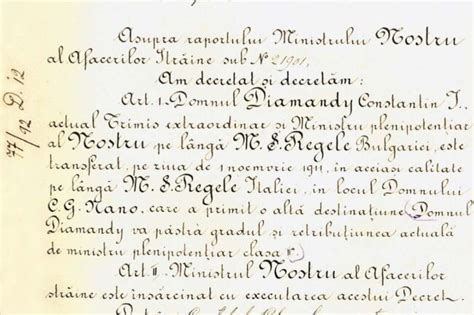 Asupra raportului Ministrului Nostru
al Afacerilor Străine sub № 21901,
Am decretat și decretăm:
Art. I. Domnul Diamandy Constantin I.,
actual Trimis extraordinar și Ministru plenipotențiar
al Nostru pe lângă M. S. Regele Bulgariei, este
transferat, pe ziua de 1 noemvrie 1911, în aceiași calitate
pe lângă M. S. Regele Italiei, în locul Domnului
C. G. Nano, care a primit o altă destinațiune. Domnul
Diamandy va păstră gradul și retribuțiunea actuală
de ministru plenipotențiar clasa II.
Art. II. Ministrul Nostru al Afacerilor
străine este însărcinat cu executarea acestui Decret.
77/92 D. 12